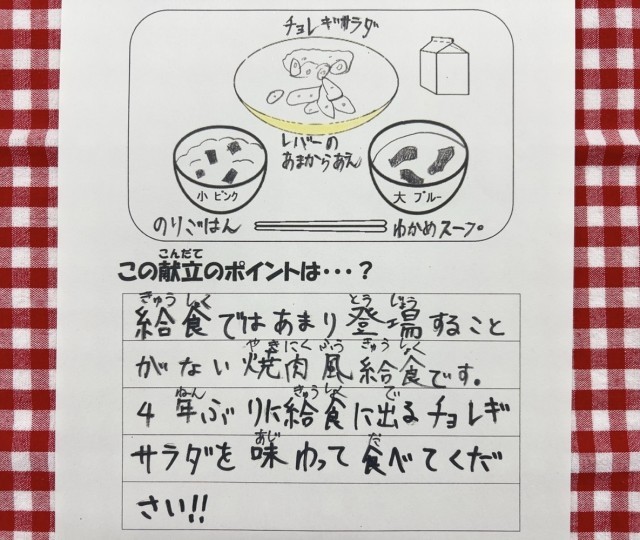 チョレギサラダ
レバーの
あまからあえ
小 ピンク
大 ブルー
のりごはん
わかめスープ
こんだて
この献立のポイントは・・・？
きゅう しょく とう じょう
給食ではあまり登場すること
やきにく ふう きゅう しょく
がない焼肉風給食です。
ねん きゅうしょく で
4年ぶりに給食に出るチョレギ
あじ た
サラダを味わって食べてくだ
さい!!